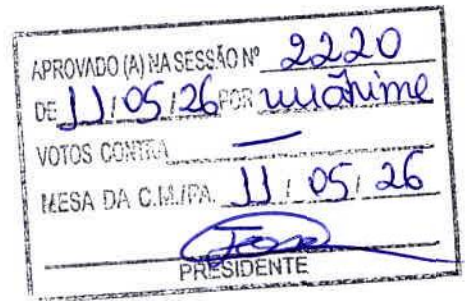 APROVADO (A) NA SESSÃO Nº 2220
DE 11/05/26 POR unânime
VOTOS CONTRA —
MESA DA C.M./PA. 11/05/26
PRESIDENTE